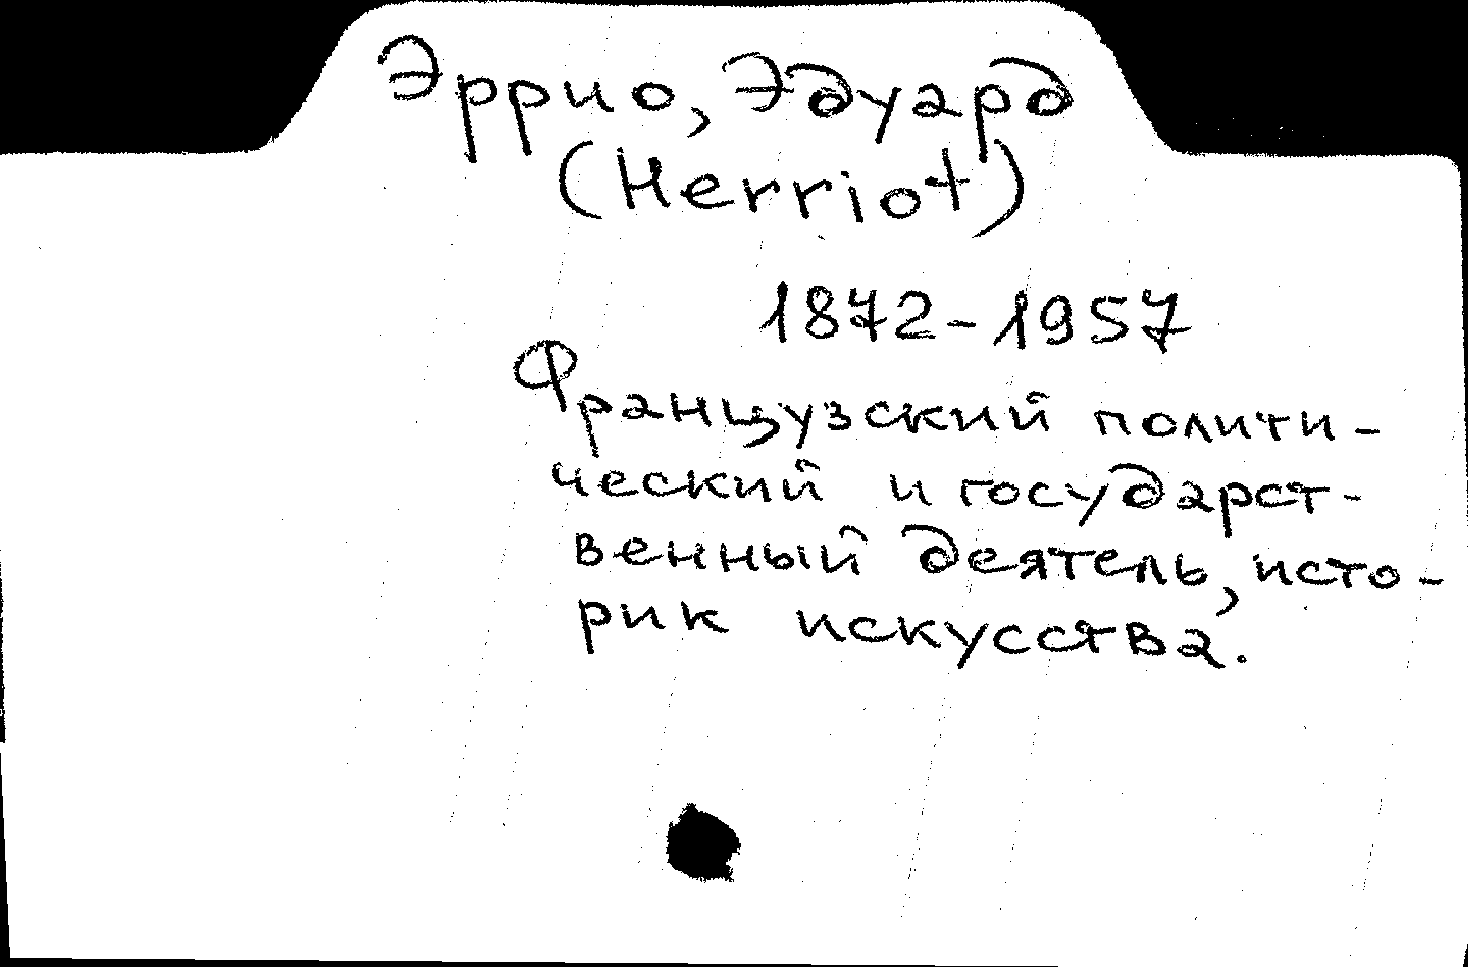 Эррио, Эдуард
(Herriot)
1872-1957
Французский полити-
ческий и государст-
венный деятель, исто-
рик искусства.